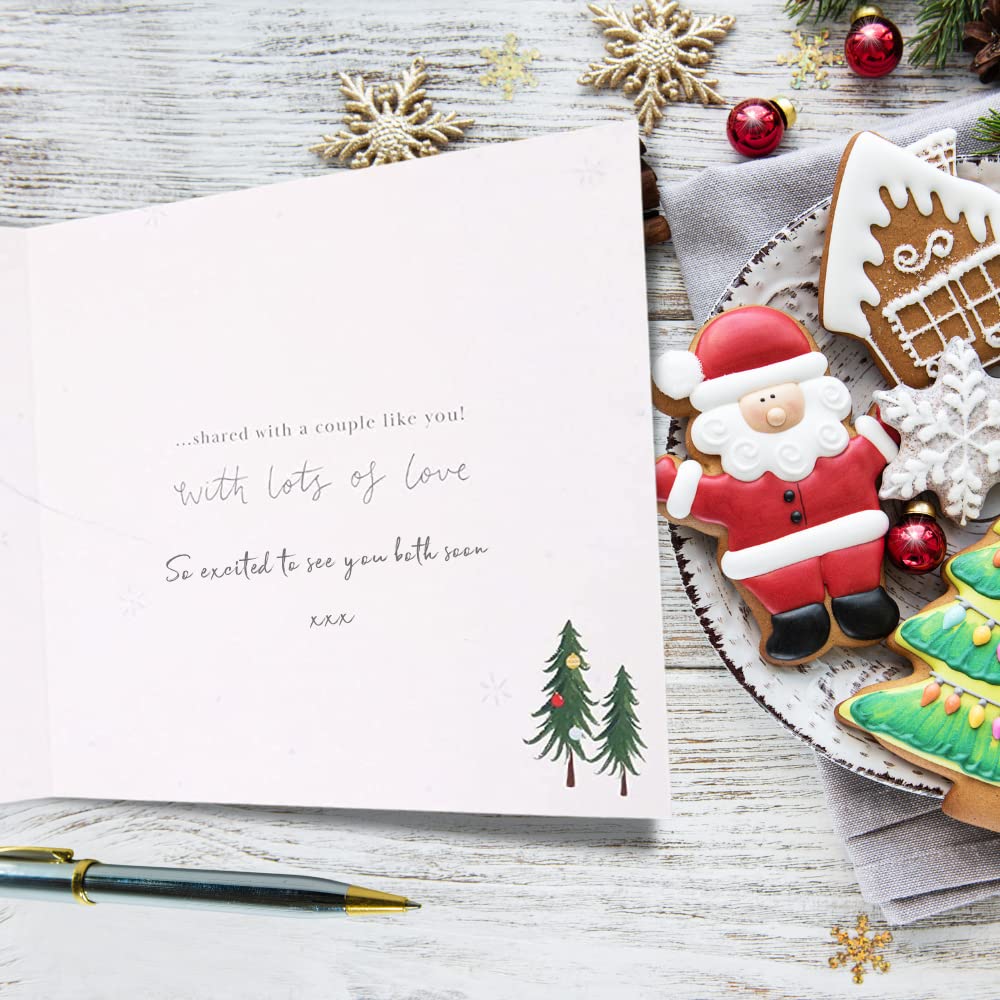 ...shared with a couple like you!
with lots of love
So excited to see you both soon
xxx